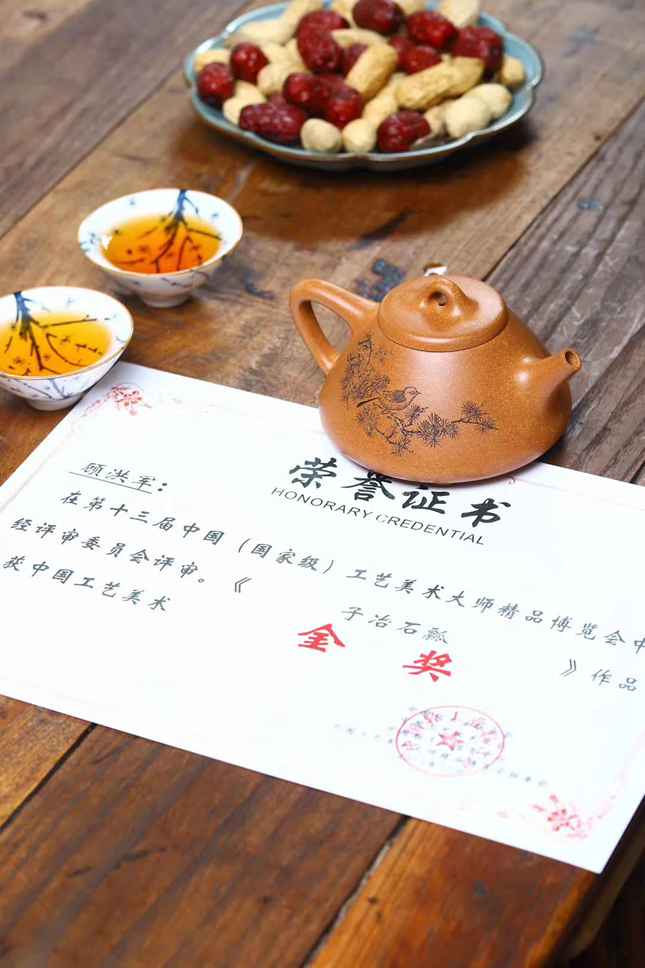 荣誉证书
HONORARY CREDENTIAL
顾洪军：
在第十三届中国（国家级）工艺美术大师精品博览会中
经评审委员会评审。《子冶石瓢》作品
获中国工艺美术
金奖